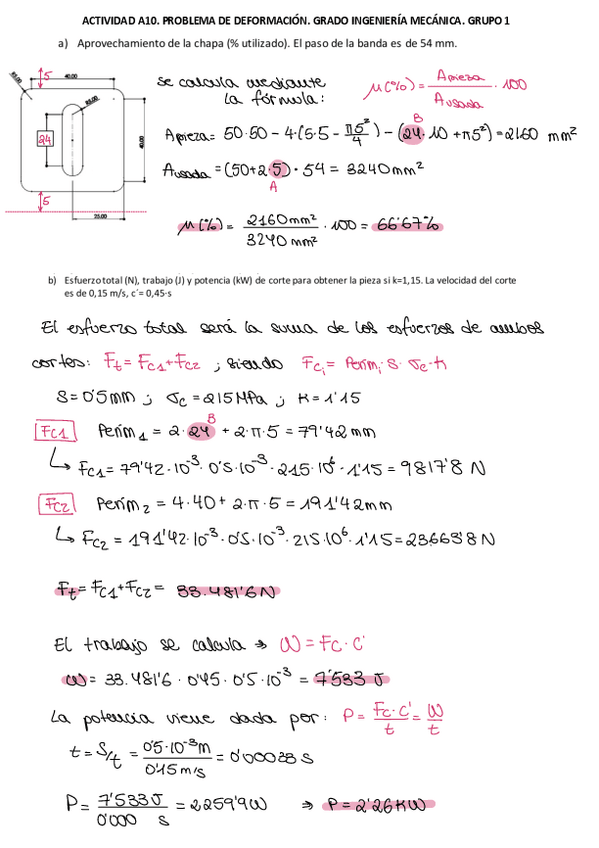 ACTIVIDAD A10. PROBLEMA DE DEFORMACIÓN. GRADO INGENIERÍA MECÁNICA. GRUPO 1
a) Aprovechamiento de la chapa (% utilizado). El paso de la banda es de 54 mm.
5
40.00
24
40.00
5
25.00
se calcula mediante
la fórmula:
μ(%) = Apieza / Ausada · 100
B
Apieza = 50·50 - 4·(5·5 - π5²/4) - (24·10 + π5²) = 2160 mm²
Ausada = (50+2·5) · 54 = 3240 mm²
A
μ(%) = 2160 mm² / 3240 mm² · 100 = 66'67%
b) Esfuerzo total (N), trabajo (J) y potencia (kW) de corte para obtener la pieza si k=1,15. La velocidad del corte
es de 0,15 m/s, c´= 0,45·s
El esfuerzo total será la suma de los esfuerzos de ambos
cortes: Ft = Fc1 + Fc2 ; siendo Fci = Perimi · S · σc · k
S = 0'5 mm ; σc = 215 MPa ; K = 1'15
B
Fc1 Perim1 = 2·24 + 2·π·5 = 79'42 mm
↳ Fc1 = 79'42·10⁻³ · 0'5·10⁻³ · 215·10⁶ · 1'15 = 9817'8 N
Fc2 Perim2 = 4·40 + 2·π·5 = 191'42 mm
↳ Fc2 = 191'42·10⁻³ · 0'5·10⁻³ · 215·10⁶ · 1'15 = 23663'8 N
Ft = Fc1 + Fc2 = 33.481'6 N
El trabajo se calcula → W = Fc · C'
W = 33.481'6 · 0'45 · 0'5·10⁻³ = 7'533 J
La potencia viene dada por: P = Fc·C' / t = W / t
t = S/t = 0'5·10⁻³ m / 0'15 m/s = 0'00033 s
P = 7'533 J / 0'000 s = 2259'9 W → P = 2'26 KW